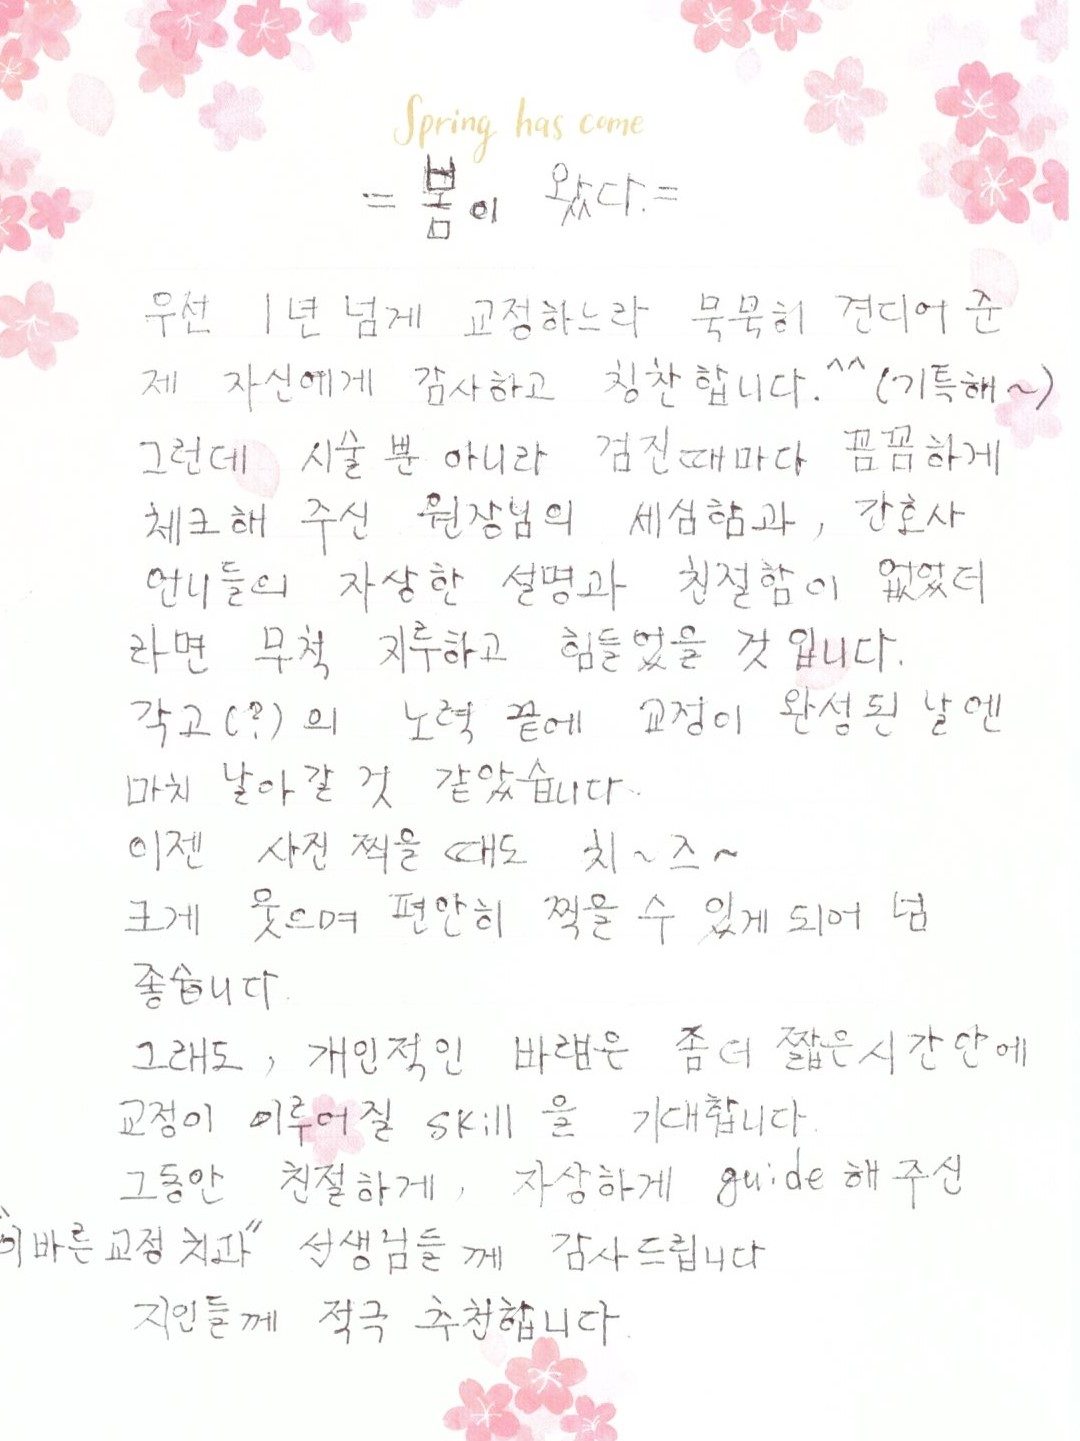 Spring has come
= 봄이 왔다. =
우선 1년 넘게 교정하느라 묵묵히 견디어 준
제 자신에게 감사하고 칭찬합니다.^^ (기특해~)
그런데 시술 뿐 아니라 검진때마다 꼼꼼하게
체크해 주신 원장님의 세심함과, 간호사
언니들의 자상한 설명과 친절함이 없었더
라면 무척 지루하고 힘들었을 것 입니다.
각고(?)의 노력 끝에 교정이 완성된 날엔
마치 날아갈 것 같았습니다.
이젠 사진 찍을 때도 치~즈~
크게 웃으며 편안히 찍을 수 있게 되어 넘
좋습니다.
그래도, 개인적인 바램은 좀더 짧은시간안에
교정이 이루어질 skill 을 기대합니다.
그동안 친절하게, 자상하게 guide 해주신
"이바른교정치과" 선생님들께 감사드립니다
지인들께 적극 추천합니다.